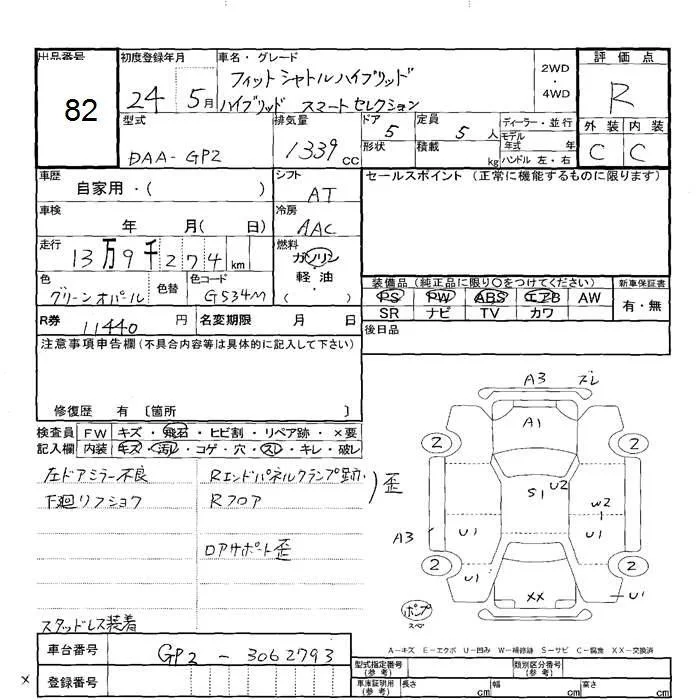 出品番号 初度登録年月 車名・グレード 評価点
82
24 5月 フィットシャトルハイブリッド 2WD・4WD R
ハイブリッド スマートセレクション
型式 排気量 ドア 5 定員 5 人 ディーラー・並行 外装 内装
DAA-GP2 1339 cc 形状 積載 kg モデル年式 年 C C
ハンドル 左・右
車歴 自家用・( ) シフト AT セールスポイント (正常に機能するものに限ります)
車検 年 月( 日) 冷房 AAC
走行 13万9千274 km 燃料 ガソリン・軽油・( )
色 グリーンオパール 色替 色コード G534M
装備品 (純正品に限り〇をつけてください) 新車保証書
PS PW ABS エアB AW 有・無
SR ナビ TV カワ
R券 11440 円 名変期限 月 日 後日品
注意事項申告欄(不具合内容等は具体的に記入して下さい)
修復歴 有 〔箇所 〕
検査員 FW キズ・飛石・ヒビ割・リペア跡・×要
記入欄 内装 キズ・汚レ・コゲ・穴・スレ・キレ・破レ
左ドアミラー不良 Rエンドパネルクランプ跡 ) 歪
下廻リフショウ Rフロア
ロアサポート歪
スタッドレス装着
A3 ズレ
A1
2 2
S1 U2
W2
A3 U1 U1
2 2
U1 XX U1
ポンプ
スペア
A-キズ E-エクボ U-凹み W-補修跡 S-サビ C-腐蝕 XX-交換済
車台番号 GP2-3062793
型式指定番号(参考) 類別区分番号(参考)
× 登録番号
車庫証明用(参考) 長さ cm 幅 cm 高さ cm